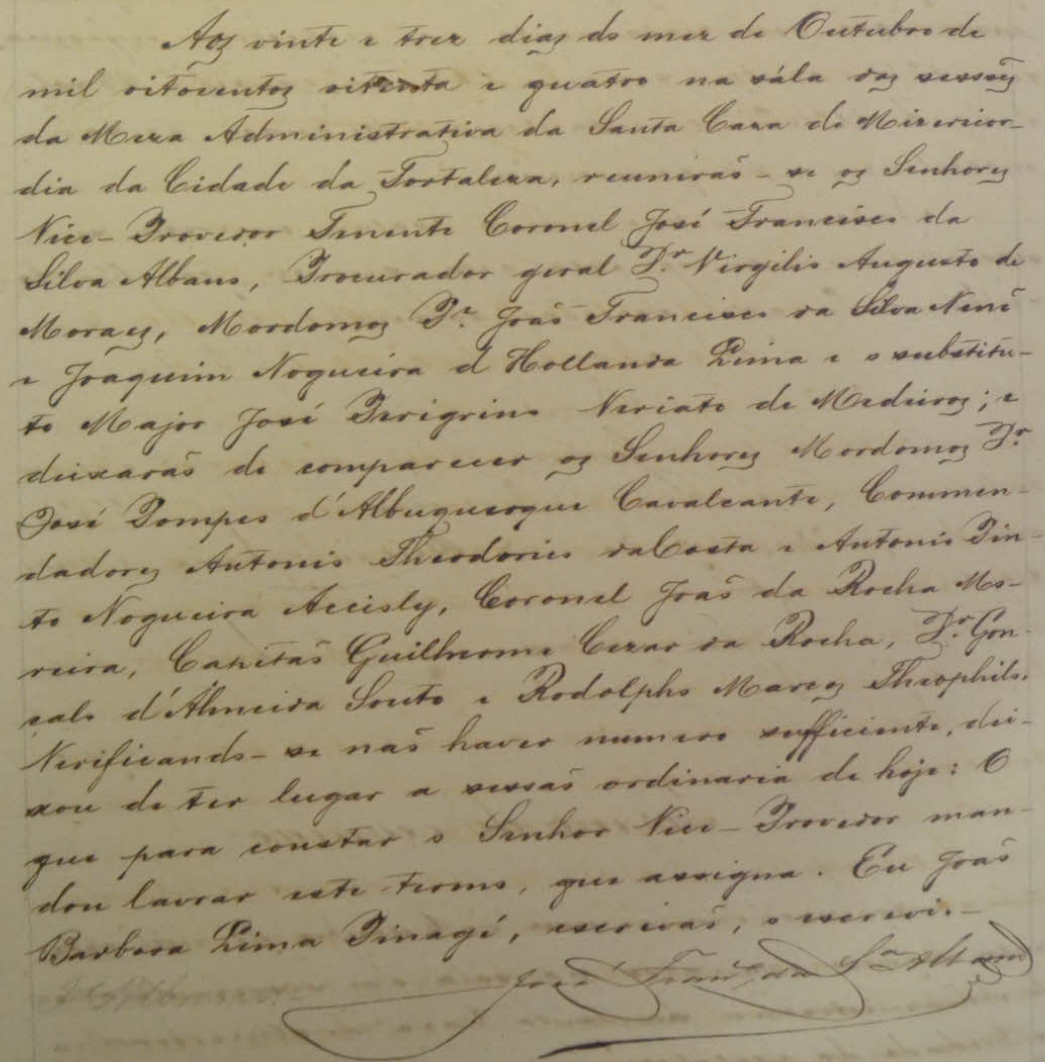 Aos vinte e trez dias do mez de Outubro de
mil oitocentos oitenta e quatro na sála das sessões
da Meza Administrativa da Santa Caza de Mizericor-
dia da Cidade da Fortaleza, reunirás-se os Senhores
Vice-Provedor Tenente Coronel José Francisco da
Silva Albano, Procurador geral Dr. Virgilio Augusto de
Moraes, Mordomos Dr. João Francisco da Silva
e Joaquim Nogueira d'Hollanda Lima e o substitu-
to Major José Perigrino Veriato de Medeiros; e
deixarás de comparecer os Senhores Mordomos Dr.
José Pompeo d'Albuquerque Cavalcante, Commen-
dadores Antonio Theodorico da Costa e Antonio Pin-
to Nogueira Accioly, Coronel João da Rocha Mo-
reira, Capitão Guilherme Cezar da Rocha, Dr. Gon-
calo d'Almeida Souto e Rodolpho Marcos Theophilo.
Verificando-se não haver numero sufficiente, dei-
xou de ter lugar a sessão ordinaria de hoje: O
que para constar o Senhor Vice-Provedor man-
dou lavrar este termo, que assigna. Eu João
Barboza Lima Pinagé, escrivão, o escrevi.-
José Franco da Sa Albano